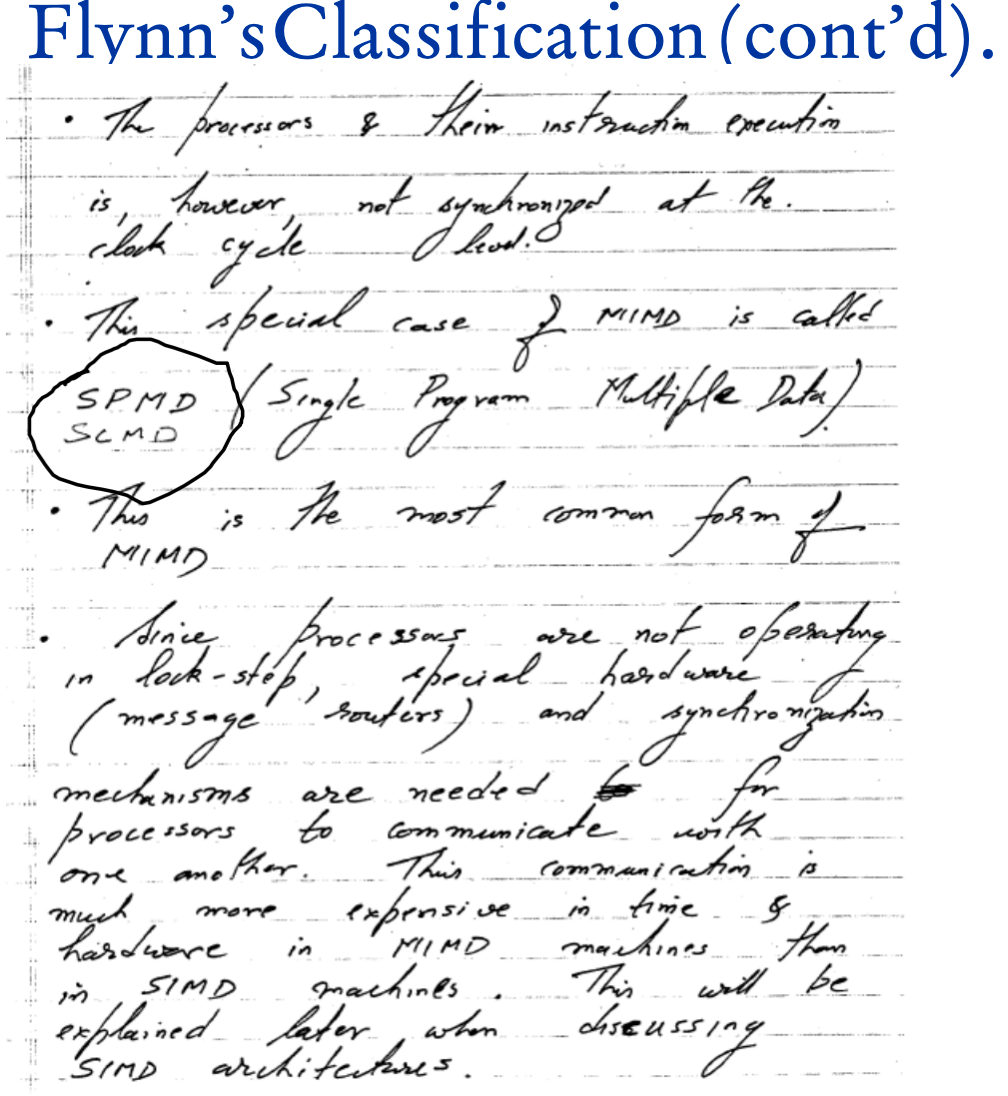 Flynn's Classification (cont'd).
• The processors & their instruction execution
is, however, not synchronized at the.
clock cycle level.
• This special case of MIMD is called
SPMD (Single Program Multiple Data).
SCMD
• This is the most common form of
MIMD
• Since processors are not operating
in lock-step, special hardware
(message routers) and synchronization
mechanisms are needed for
processors to communicate with
one another. This communication is
much more expensive in time &
hardware in MIMD machines than
in SIMD machines. This will be
explained later when discussing
SIMD architectures.